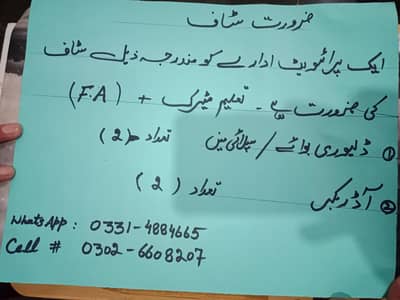 ضرورت سٹاف
ایک پرائیویٹ ادارے کو مندرجہ ذیل سٹاف
کی ضرورت ہے۔ تعلیم میٹرک + (F.A)
① ڈلیوری بوائے / سپلائی مین تعداد (2)
② آڈر بکر تعداد (2)
WhatsApp: 0331-4884665
Call # 0302-6608207